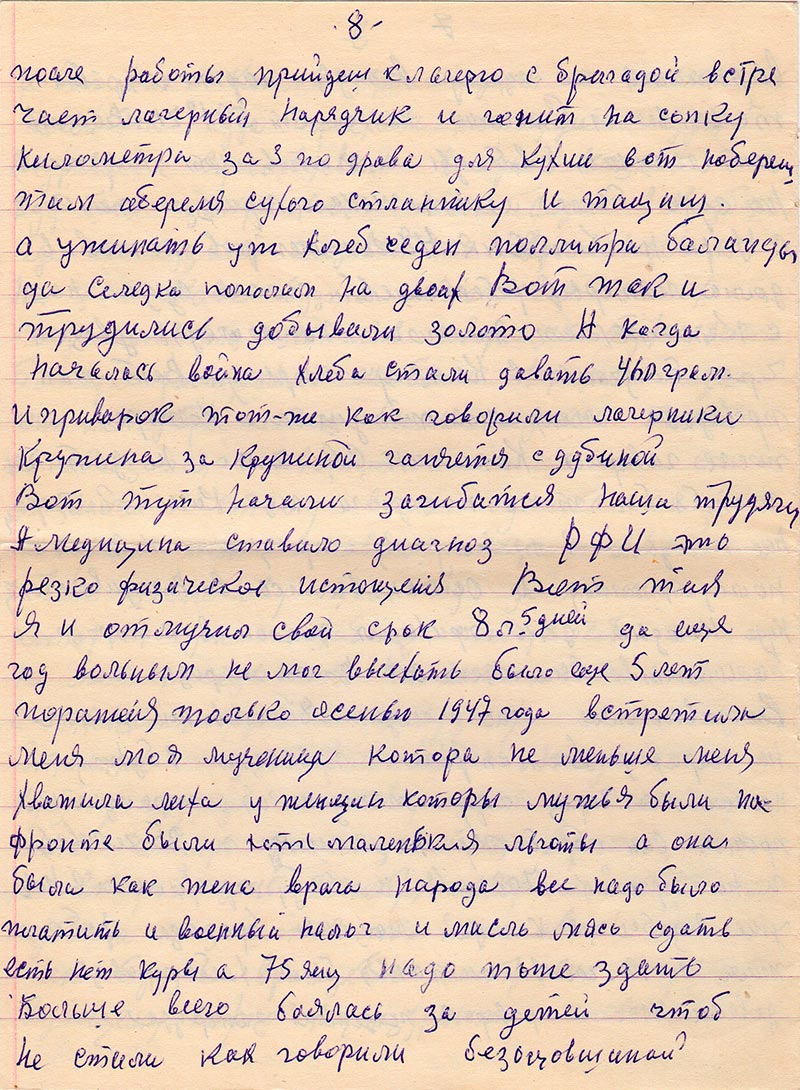 -8-
после работы прийдеш к лагерю с бригадой встре
чает лагерный нарядчик и гонит на сопку
километра за 3 по дрова для кухни вот набереш
там аберемя сухого стланику и тащиш.
а ужинать уж хлеб седен поллитра баланды
да селедка пополам на двоих Вот так и
трудились добывали золото А когда
началась война хлеба стали давать 400 грам.
и приварок тот-же как говорили лагерники
крупина за крупиной гоняется с дубиной
Вот тут начали загибатся наша трудящ
А медицина ставило диагноз РФИ это
резко физическое истощения Вот тая
Я и отмучил свой срок 8 л. 5 дней да еще
год вольным не мог выехать было еще 5 лет
поражения только осенью 1947 года встретила
меня моя мученица котора не меньше меня
хватила лиха у женщин которы мужья были на-
фронте были хоть маленькия льготы а она
была как жена врага народа все надо было
платить и военный налог и масль мясь сдать
есть нет куры а 75 яиц надо тоже здать
Больше всего боялась за детей чтоб
не стали как говорили безотцовщиной